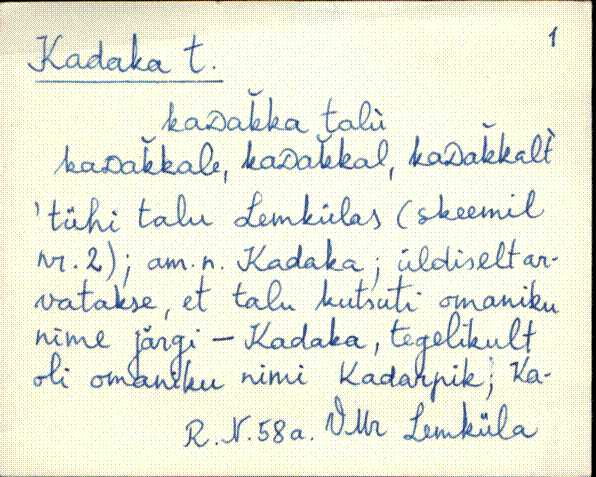 1
Kadaka t.
kaᴅak̆ka talù
kaᴅak̆kale, kaᴅak̆kal, kaᴅak̆kalt̀
'tühi talu Lemkülas (skeemil
nr. 2); am. n. Kadaka; üldiselt ar-
vatakse, et talu kutsuti omaniku
nime järgi – Kadaka, tegelikult
oli omaniku nimi Kadarpik; Ka-
R. N. 58 a. VMr Lemküla